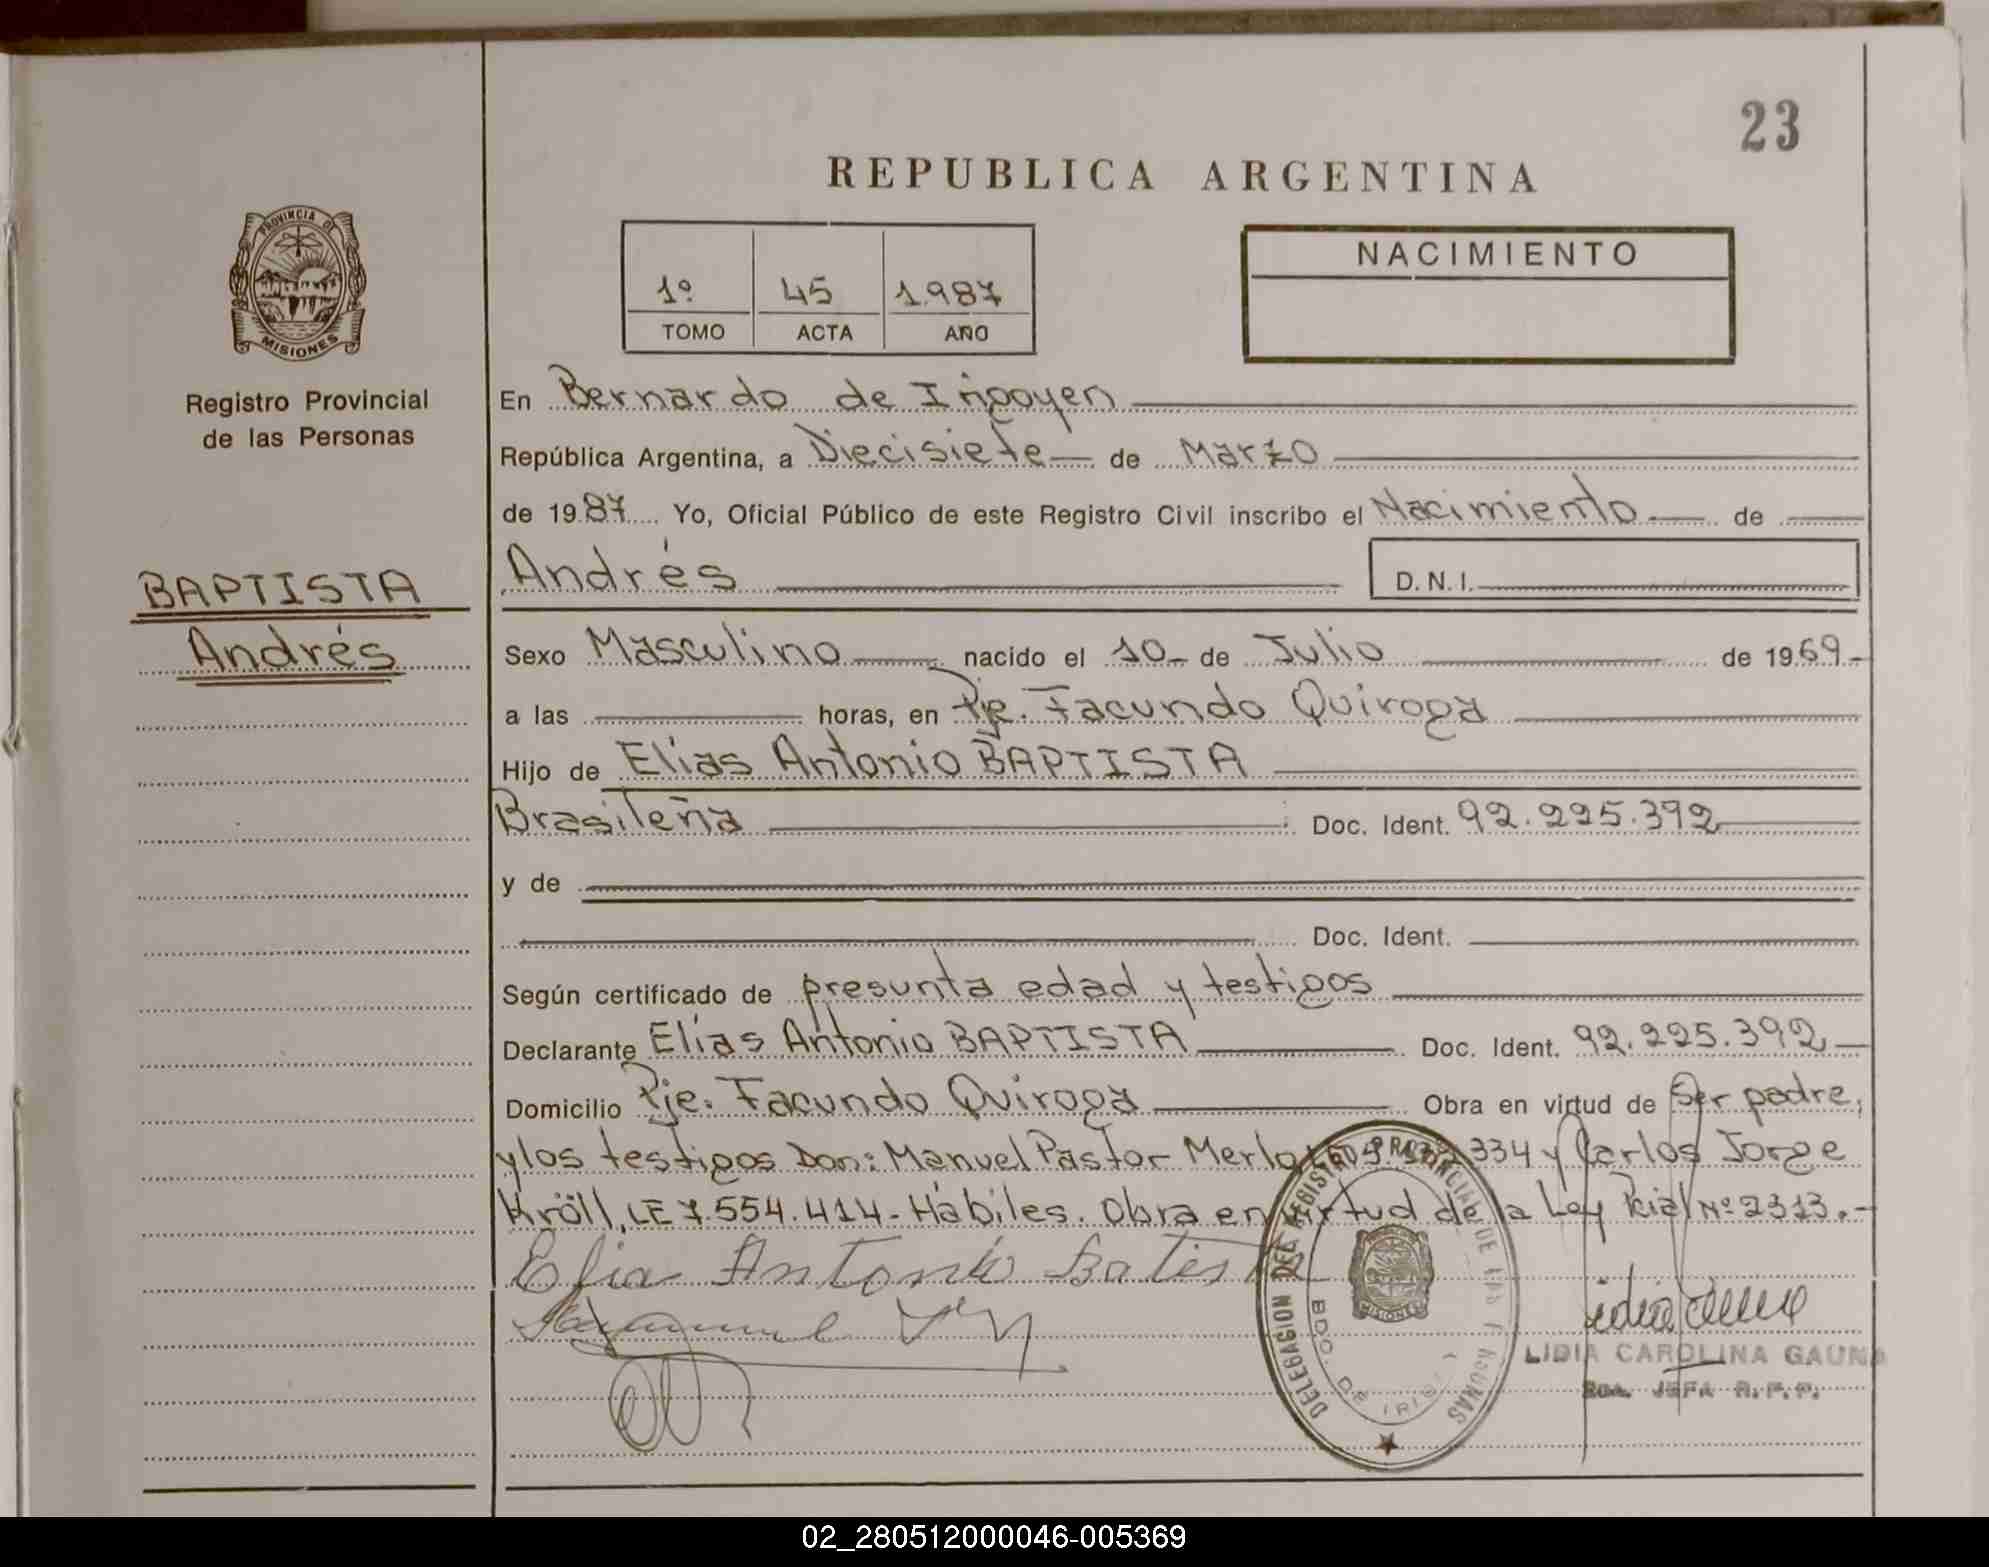 23
REPUBLICA ARGENTINA
PROVINCIA DE
MISIONES
Registro Provincial
de las Personas
1º 45 1.987
TOMO ACTA AÑO
NACIMIENTO
BAPTISTA
Andrés
En Bernardo de Irigoyen
República Argentina, a Diecisiete de Marzo
de 1987 Yo, Oficial Público de este Registro Civil inscribo el Nacimiento de
Andrés D.N.I.
Sexo Masculino nacido el 10 de Julio de 1969.-
a las horas, en Pje. Facundo Quiroga
Hijo de Elías Antonio BAPTISTA
Brasileña Doc. Ident. 92.225.392
y de
Doc. Ident.
Según certificado de presunta edad y testigos
Declarante Elías Antonio BAPTISTA Doc. Ident. 92.225.392
Domicilio Pje. Facundo Quiroga Obra en virtud de Ser padre,
y los testigos Don: Manuel Pastor Merlo 334 y Carlos Jorge
Kröll, LE 7.554.414- Hábiles. Obra en virtud de la Ley Pcial Nº 2313.-
Elia Antonio Batista
DELEGACION DEL REGISTRO PROVINCIAL DE LAS PERSONAS
BDO. DE IRIGOYEN
MISIONES
LIDIA CAROLINA GAUNA
JEFA R.P.P.
02_280512000046-005369